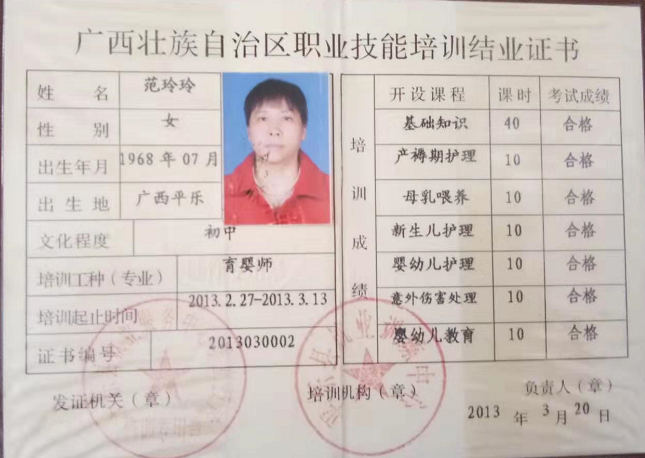 广西壮族自治区职业技能培训结业证书
姓名 范玲玲
性别 女
出生年月 1968年07月
出生地 广西平乐
文化程度 初中
培训工种（专业） 育婴师
培训起止时间 2013.2.27-2013.3.13
证书编号 2013030002
发证机关（章）
培训成绩
开设课程 课时 考试成绩
基础知识 40 合格
产褥期护理 10 合格
母乳喂养 10 合格
新生儿护理 10 合格
婴幼儿护理 10 合格
意外伤害处理 10 合格
婴幼儿教育 10 合格
培训机构（章）
负责人（章）
2013 年 3月20日